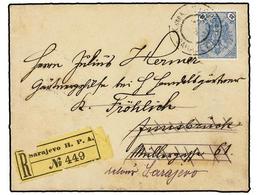 Herrn Julius Hermer
Gärtnergehilfe bei H Handelsgärtner
K. Fröhlich
Innsbruck
Müllergasse 61
Sarajevo
Sarajevo H. P. A.
R
№ 449